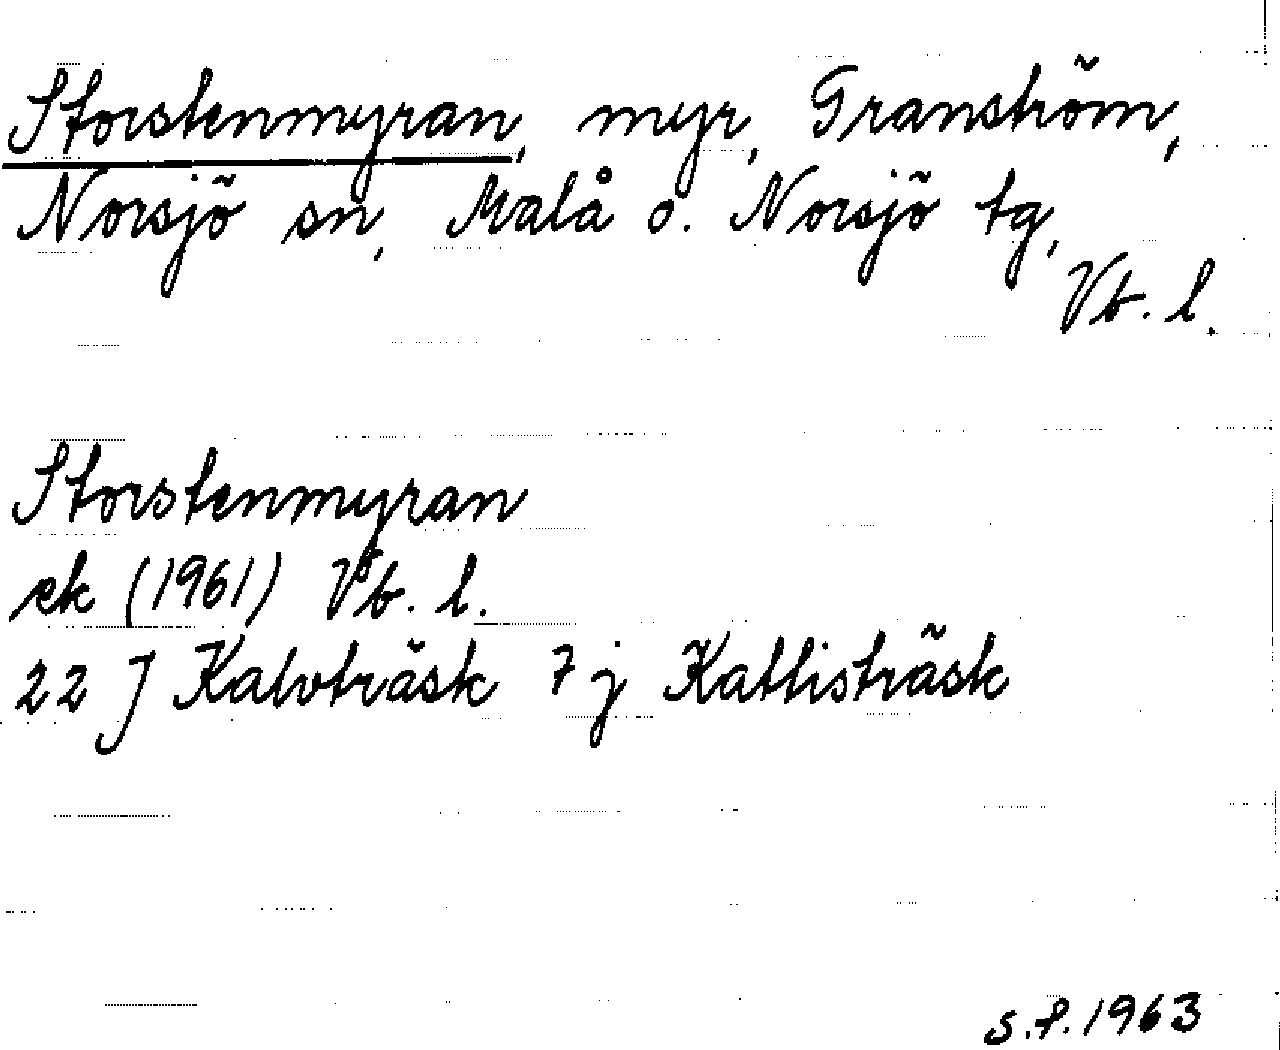 Storstenmyran, myr, Granström,
Norsjö sn, Malå o. Norsjö tg,
Vb. l.
Storstenmyran
ek (1961) Vb. l.
22 J Kalvträsk 7 j Kattisträsk
s.f. 1963